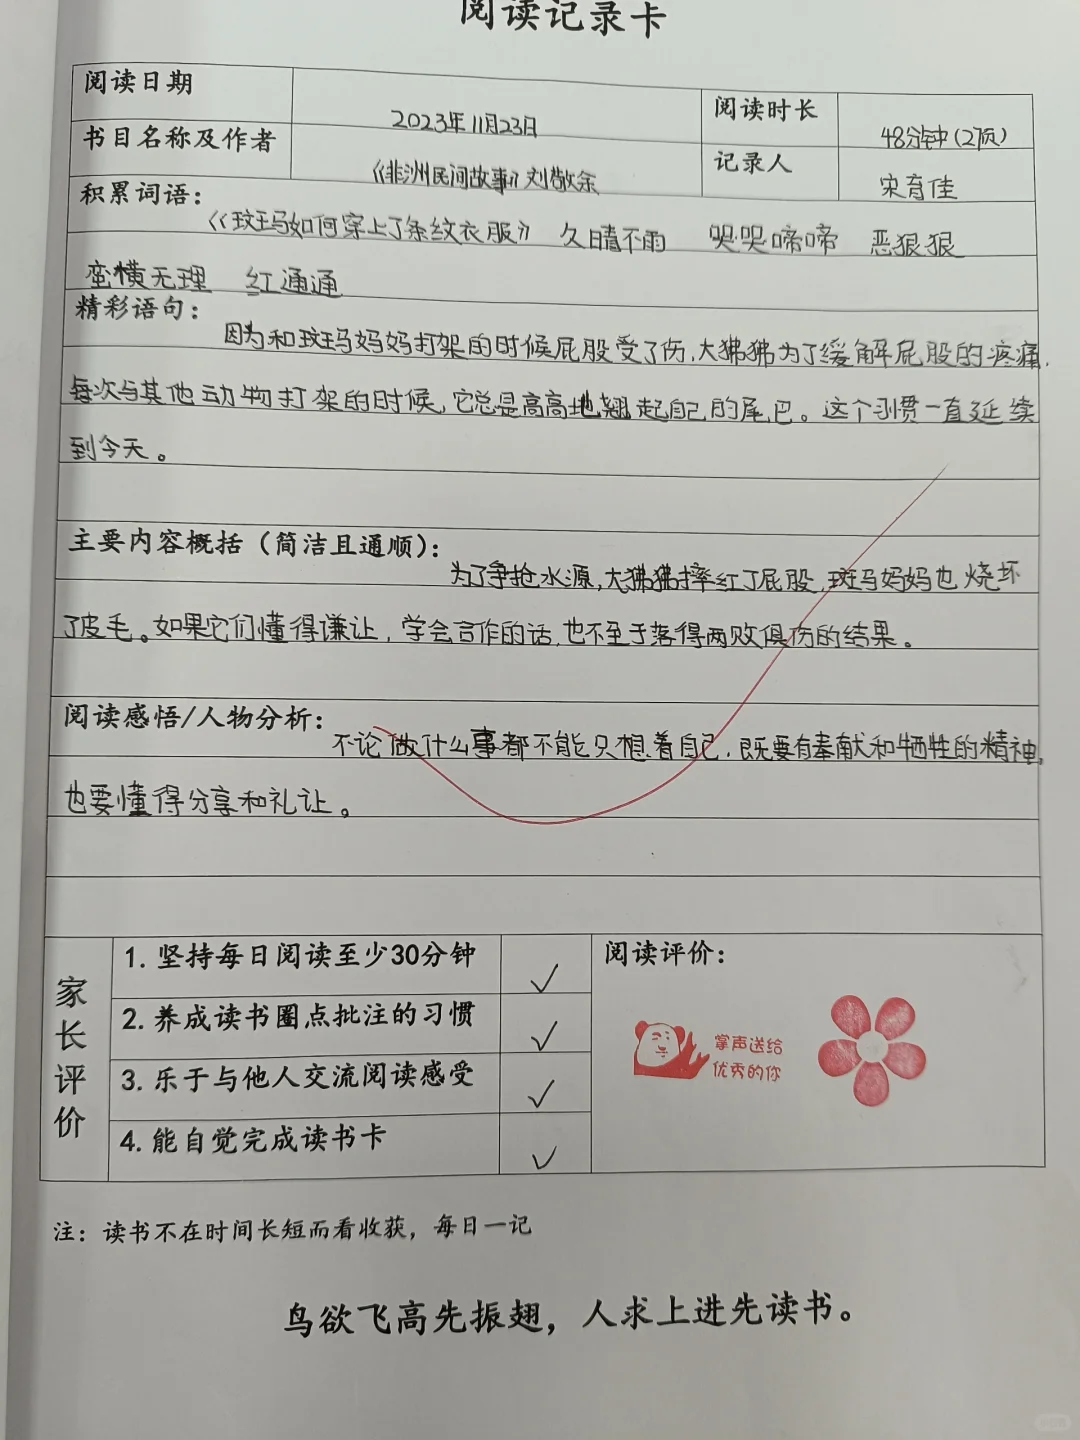 阅读记录卡
阅读日期 2023年11月23日 阅读时长 48分钟(27页)
书目名称及作者 《非洲民间故事》刘敬余 记录人 宋育佳
积累词语:
《斑马如何穿上了条纹衣服》 久晴不雨 哭哭啼啼 恶狠狠
蛮横无理 红通通
精彩语句:
因为和斑马妈妈打架的时候屁股受了伤,大狒狒为了缓解屁股的疼痛,
每次与其他动物打架的时候,它总是高高地翘起自己的尾巴。这个习惯一直延续
到今天。
主要内容概括(简洁且通顺):
为了争抢水源,大狒狒摔红了屁股,斑马妈妈也烧坏
了皮毛。如果它们懂得谦让,学会合作的话,也不至于落得两败俱伤的结果。
阅读感悟/人物分析:
不论做什么事都不能只想着自己,既要有奉献和牺牲的精神,
也要懂得分享和礼让。
家长评价
1. 坚持每日阅读至少30分钟 ✓
2. 养成读书圈点批注的习惯 ✓
3. 乐于与他人交流阅读感受 ✓
4. 能自觉完成读书卡 ✓
阅读评价:
掌声送给
优秀的你
注:读书不在时间长短而看收获,每日一记
鸟欲飞高先振翅,人求上进先读书。